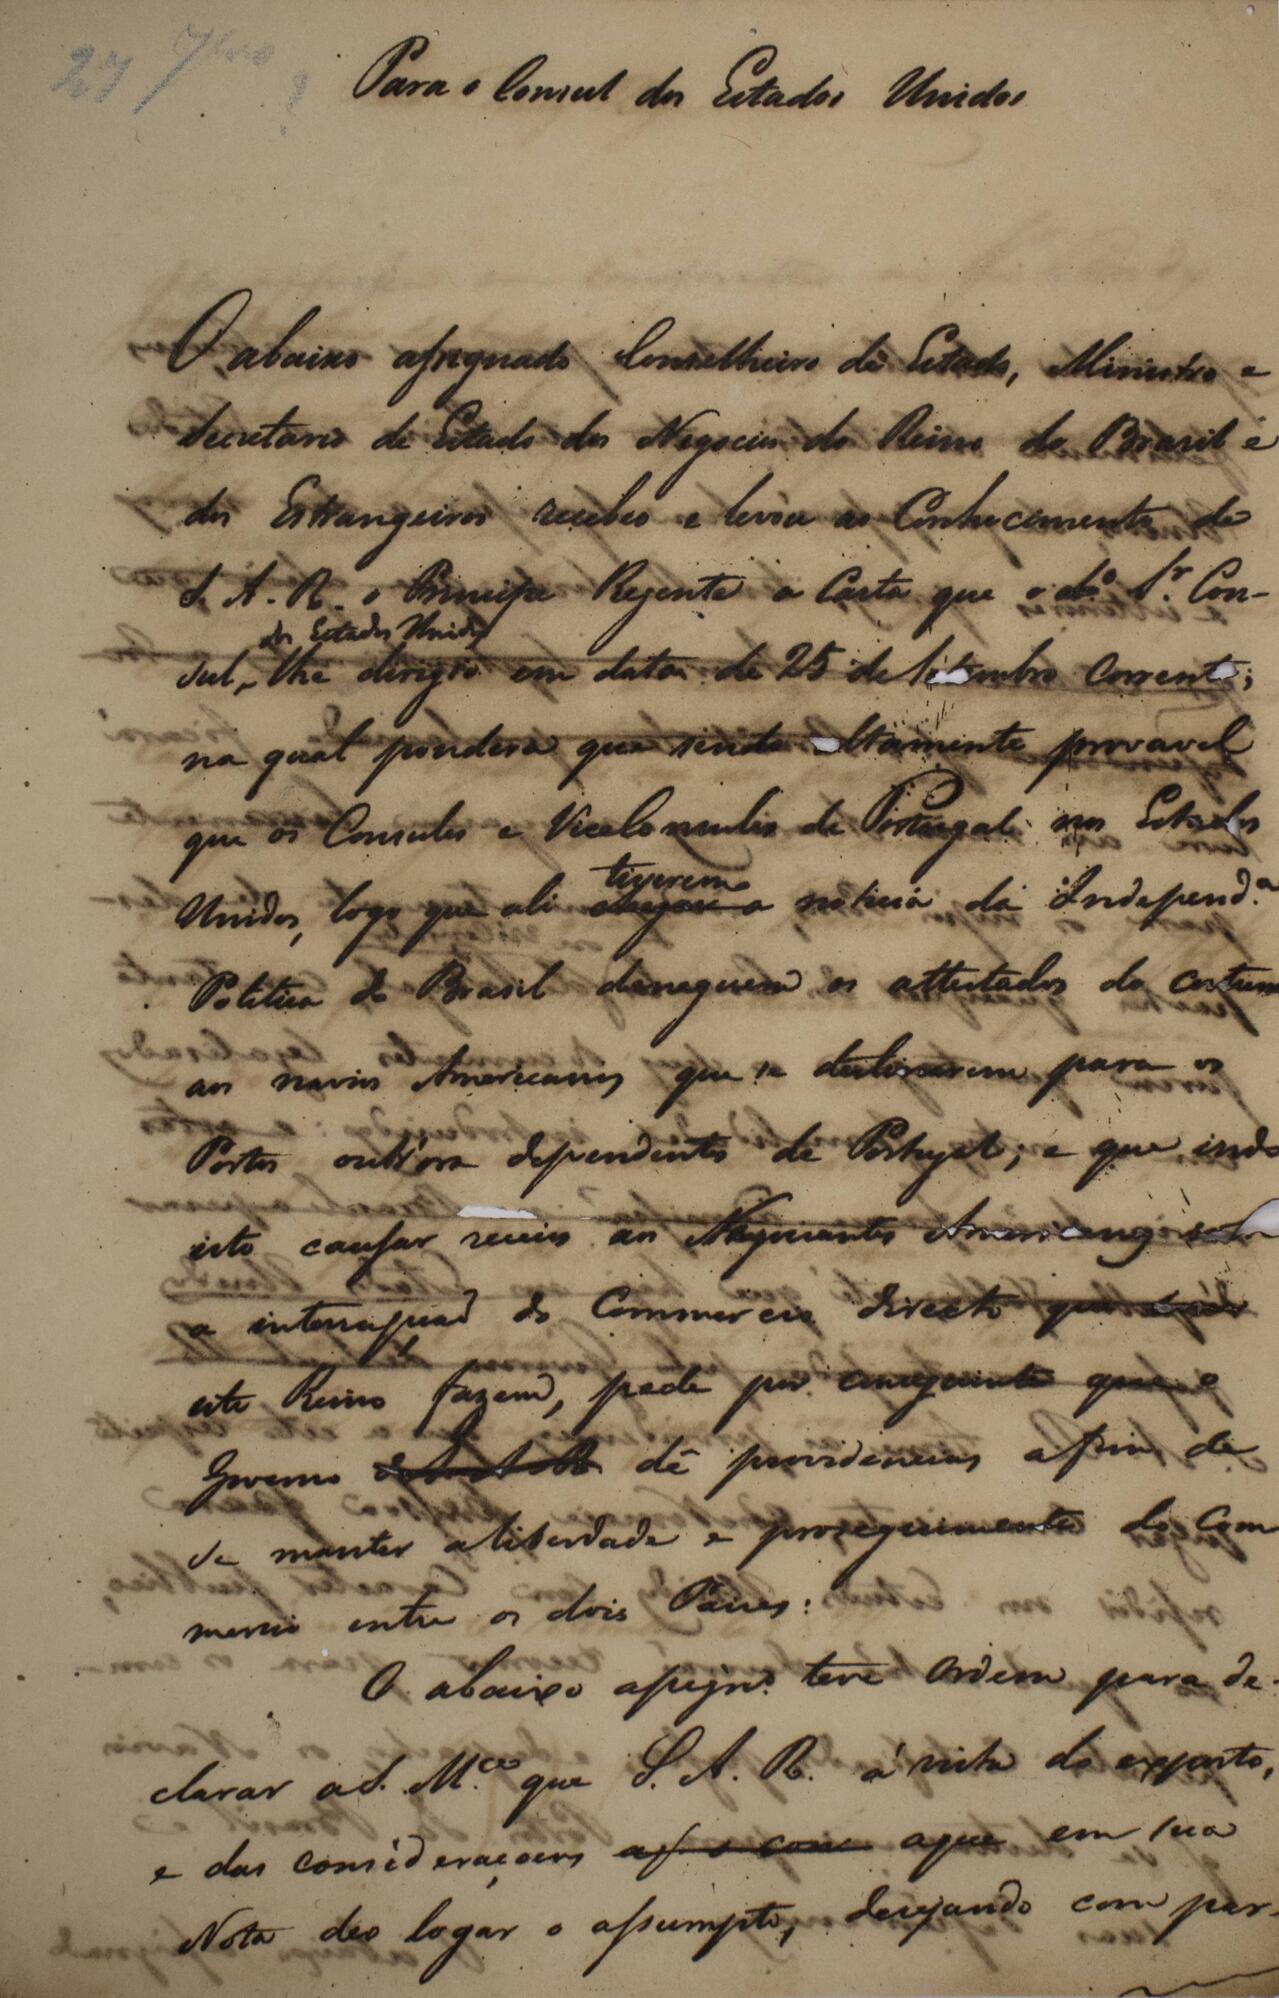 27 7bro ?
Para o Consul dos Estados Unidos
O abaixo assignado Conselheiro de Estado, Ministro e
Secretario de Estado dos Negocios do Reino do Brasil e
dos Estrangeiros recebeo e levou ao Conhecimento de
S. A. R. o Principe Regente a Carta que o do. Sr. Con-
dos Estados Unidos
sul, lhe dirigio em data de 25 de Setembro corrente;
na qual pondera que sendo altamente provavel
que os Consules e ViceConsules de Portugal nos Estados
tiverem
Unidos, logo que ali chegar a noticia da Independ.a
Politica do Brasil deneguem os attestados do costume
aos navios Americanos que se destinarem para os
Portos outr'ora dependentes de Portugal; e que indo
isto causar receios aos Negociantes Americanos
a interrupção do Commercio directo que
este Reino fazem, pede por conseguinte que o
Governo de S. A. R. dê providencias afim de
se manter a liberdade e proseguimento do Com
mercio entre os dois Paizes:
O abaixo assigno. teve Ordem para de-
clarar a S. M.ce que S. A. R. á vista do exposto,
e das considerações a que em sua
Nota deo logar o assumpto, desejando com par-